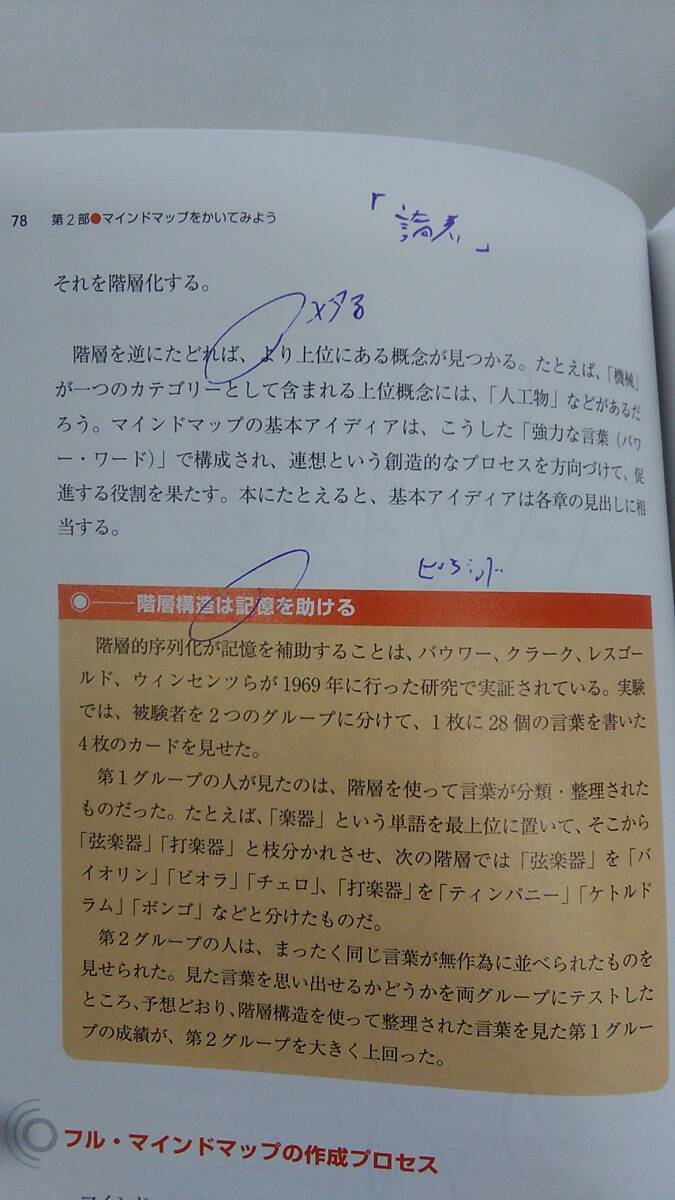 78 第2部●マインドマップをかいてみよう
それを階層化する。
メタる
階層を逆にたどれば、より上位にある概念が見つかる。たとえば、「機械」
が一つのカテゴリーとして含まれる上位概念には、「人工物」などがあるだ
ろう。マインドマップの基本アイディアは、こうした「強力な言葉（パワ
ー・ワード）」で構成され、連想という創造的なプロセスを方向づけて、促
進する役割を果たす。本にたとえると、基本アイディアは各章の見出しに相
当する。
階層構造は記憶を助ける
階層的序列化が記憶を補助することは、バウワー、クラーク、レスゴー
ルド、ウィンセンツらが1969年に行った研究で実証されている。実験
では、被験者を2つのグループに分けて、1枚に28個の言葉を書いた
4枚のカードを見せた。
第1グループの人が見たのは、階層を使って言葉が分類・整理された
ものだった。たとえば、「楽器」という単語を最上位に置いて、そこから
「弦楽器」「打楽器」と枝分かれさせ、次の階層では「弦楽器」を「バ
イオリン」「ビオラ」「チェロ」、「打楽器」を「ティンパニー」「ケトルド
ラム」「ボンゴ」などと分けたものだ。
第2グループの人は、まったく同じ言葉が無作為に並べられたものを
見せられた。見た言葉を思い出せるかどうかを両グループにテストした
ところ、予想どおり、階層構造を使って整理された言葉を見た第1グルー
プの成績が、第2グループを大きく上回った。
フル・マインドマップの作成プロセス